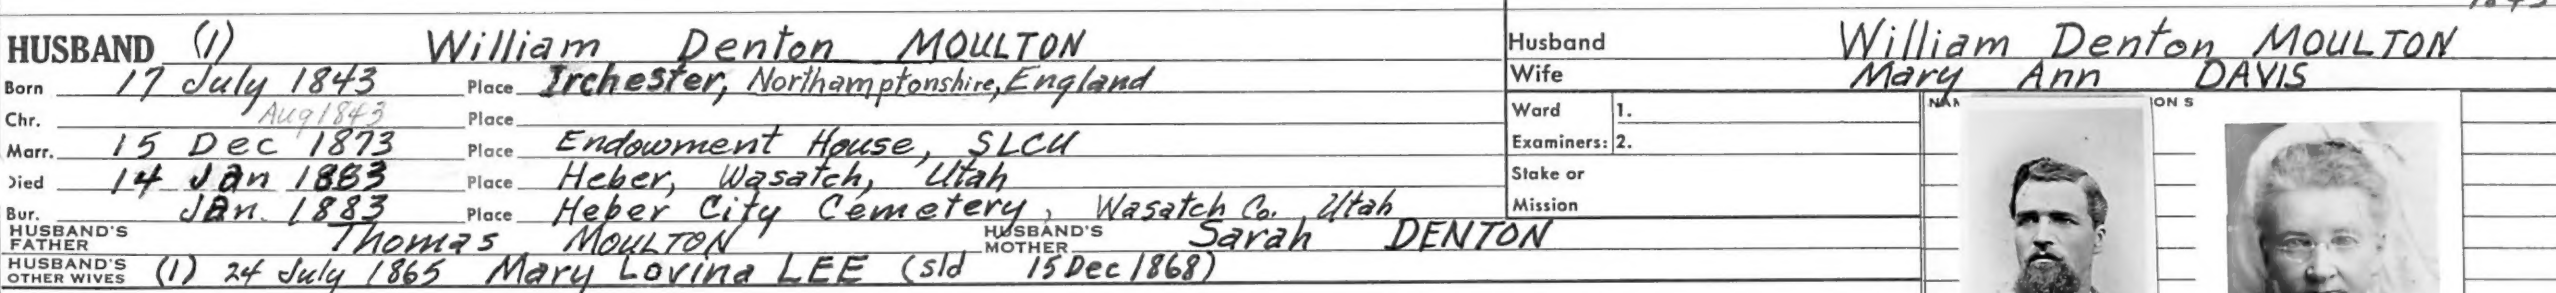 HUSBAND (1) William Denton MOULTON
Born 17 July 1843 Place Irchester, Northamptonshire, England
Chr. Aug 1843 Place
Marr. 15 Dec 1873 Place Endowment House, SLCU
Died 14 Jan 1883 Place Heber, Wasatch, Utah
Bur. Jan. 1883 Place Heber City Cemetery, Wasatch Co., Utah
HUSBAND'S FATHER Thomas MOULTON HUSBAND'S MOTHER Sarah DENTON
HUSBAND'S OTHER WIVES (1) 24 July 1865 Mary Lovina LEE (sld 15 Dec 1868)
Husband William Denton MOULTON
Wife Mary Ann DAVIS
Ward 1.
Examiners: 2.
Stake or
Mission